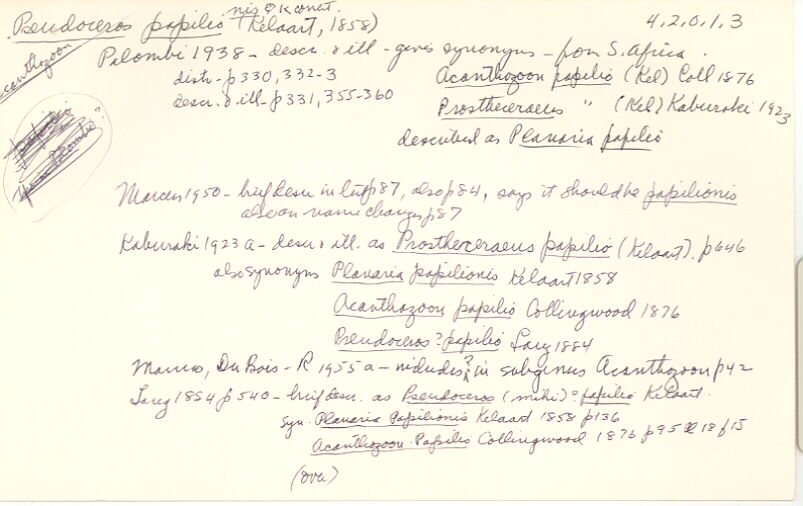 Pseudoceros papilio (Kelaart, 1858) 4.2.0.1.3
nis
Acanthozoon
Palombi 1938 - descr. & ill - gives synonyms - from S. Africa.
distr - p330, 332-3 Acanthozoon papilio (Kel) Coll 1876
descr. & ill - p331, 355-360 Prostheceraeus " (Kel) Kaburaki 1923
described as Planaria papilio
Marcus 1950 - brief descr in p87, also p84, says it should be papilionis
also on name changes p87
Kaburaki 1923a - descr & ill. as Prostheceraeus papilio (Kelaart). p646
also synonyms Planaria papilionis Kelaart 1858
Acanthozoon papilio Collingwood 1876
Pseudoceros? papilio Lang 1884
Marcus, DuBois-R 1955a - includes? in subgenus Acanthozoon p42
Lang 1884 p540 - brief descr. as Pseudoceros (mihi)? papilio Kelaart.
Syn. Planaria Papilionis Kelaart 1858 p136
Acanthozoon Papilio Collingwood 1876 p95 18 f15
(over)